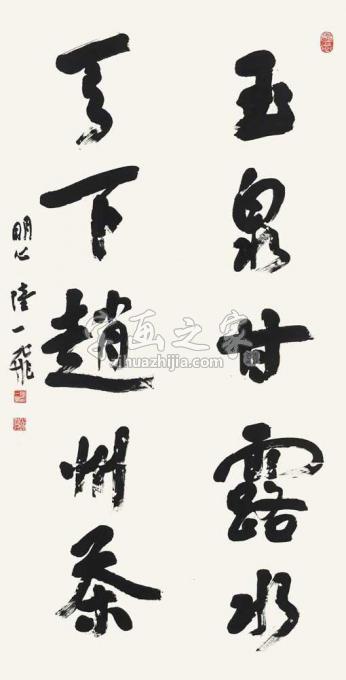 玉泉甘露水
天下趙州茶
明心 陸一飛
字画之家
zihuazhijia.com